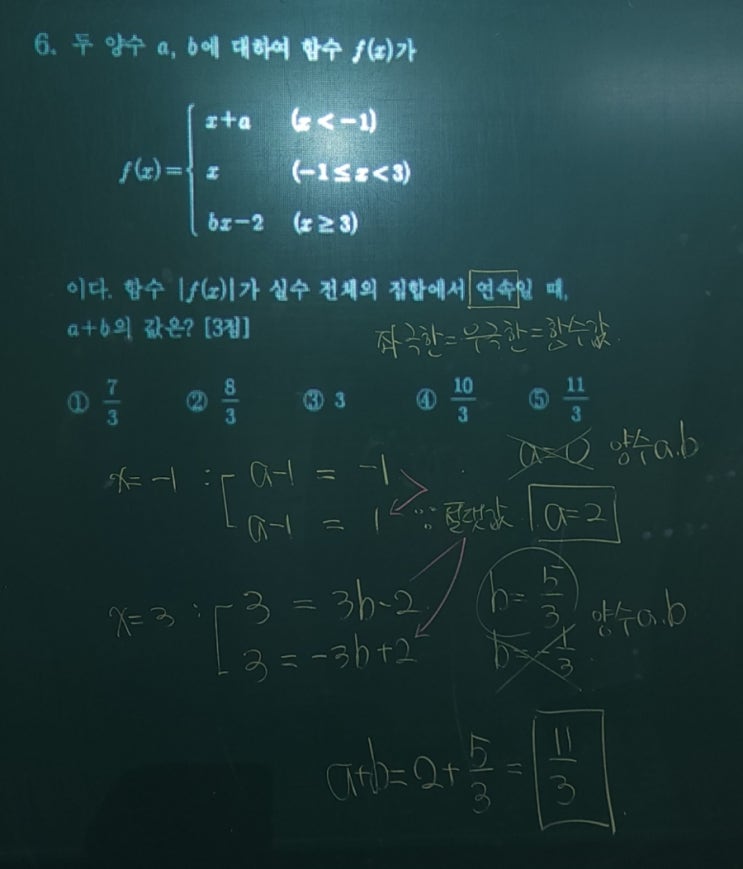 6. 두 양수 a, b에 대하여 함수 f(x)가
f(x)={ x+a (x<-1)
x (-1≤x<3)
bx-2 (x≥3)
이다. 함수 |f(x)|가 실수 전체의 집합에서 연속일 때,
a+b의 값은? [3점]
좌극한=우극한=함수값.
① 7/3 ② 8/3 ③ 3 ④ 10/3 ⑤ 11/3
a=0 양수 a.b
x=-1 : [ a-1 = -1
a-1 = 1 ∵ 절댓값. a=2
x=3 : [ 3 = 3b-2. b=5/3 양수 a.b
3 = -3b+2 b=-1/3.
a+b=2+5/3=11/3.